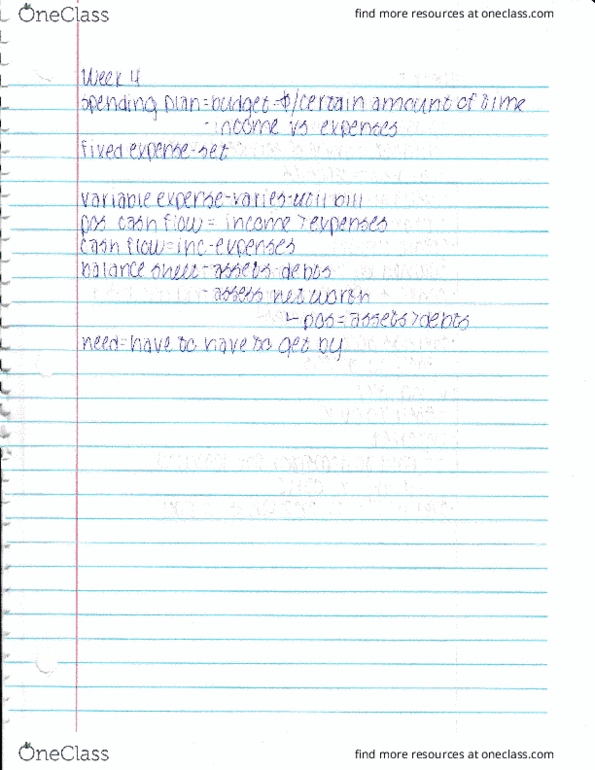 OneClass
find more resources at oneclass.com
Week 4
spending plan=budget-$/certain amount of time
-income vs expenses
fixed expense-set
variable expense-varies-util bill
pos cash flow= income>expenses
cash flow=inc-expenses
balance sheet-assets-debts
-assets net worth
↳pos=assets>debts
need=have to have to get by
OneClass
find more resources at oneclass.com